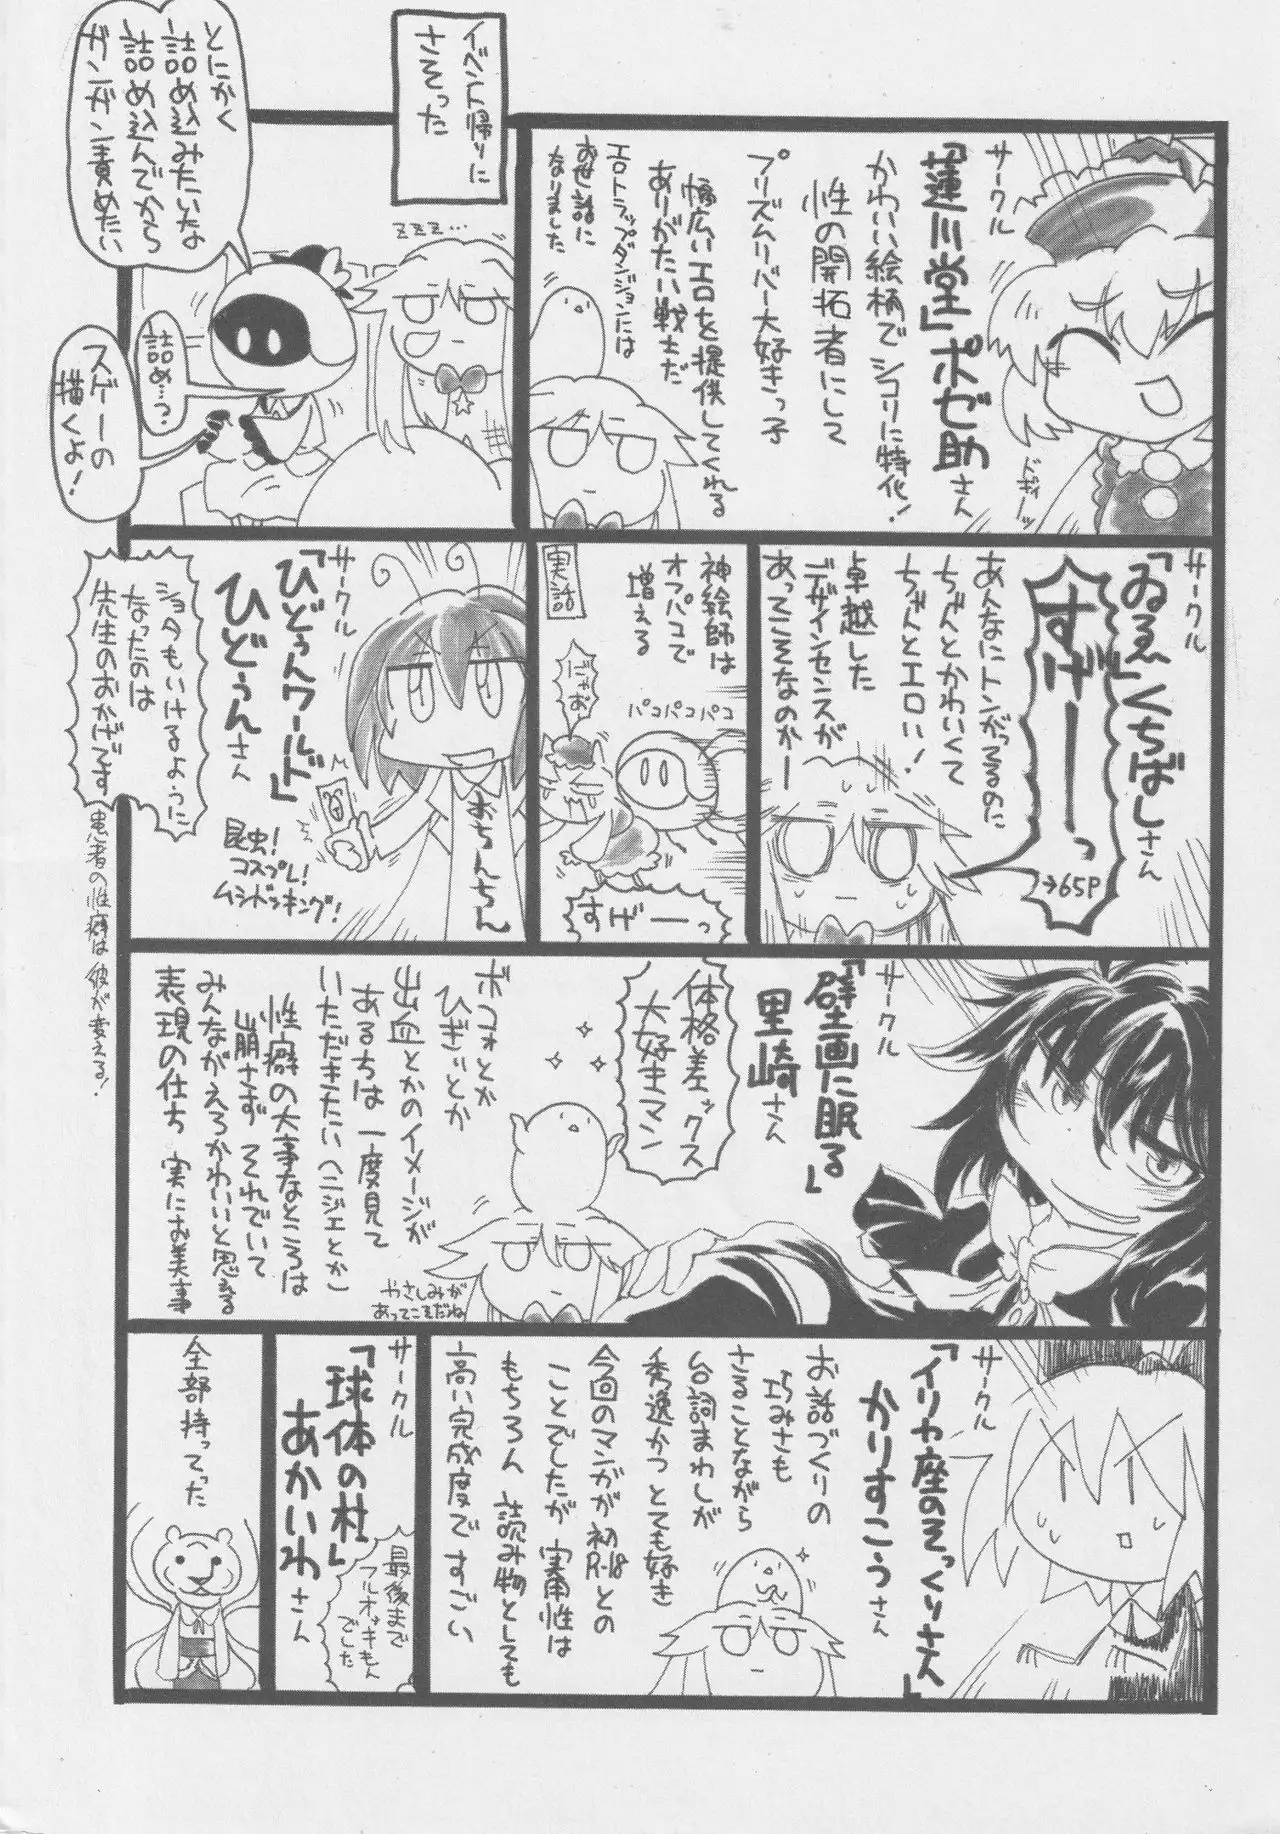 サークル
「蓮川堂」ポゼ助さん
かわいい絵柄でシコリに特化！
性の開拓者にして
プリズムリバー大好きっ子
幅広いエロを提供してくれる
ありがたい戦士だ
エロトラップダンジョンには
お世話に
なりました
イベント帰りに
さそった
zzz...
とにかく
詰め込みたいな
詰め込んでから
ガンガン責めたい
詰め…？
スゲーの
描くよ！
サークル
「ゐゑ」くちばしさん
すげーーっ
→65P
あんなにトンがってるのに
ちゃんとかわいくて
ちゃんとエロい！
卓越した
デザインセンスが
あってこそなのかー
神絵師は
オフパコで
増える
実話
パコパコパコ
にゃお
すげーーっ
サークル
「ひどぅんワールド」
ひどぅんさん
おちんちん
昆虫！
コスプレ！
ムシドッキング！
ショタもいけるように
なったのは
先生のおかげです
患者の性癖は彼が変える！
サークル
「壁画に眠る」
里崎さん
体格差ックス
大好きマン
ボコォとか
ひぎぃとか
出血とかのイメージが
ある方は一度見て
いただきたい（ヘニジェとか）
性癖の大事なところは
崩さず それでいて
みんながえろかわいいと思える
表現の仕方 実にお美事
やさしみが
あってこそだね
サークル
「イリカ座のそっくりさん」
かりすこうさん
お話づくりの
巧みさも
さることながら
台詞まわしが
秀逸かつとても好き
今回のマンガが初R-18との
ことでしたが 実用性は
もちろん 読み物としても
高い完成度ですごい
サークル
「球体の杜」
あかいわさん
最後まで
フルオッキもん
でした
全部持ってった